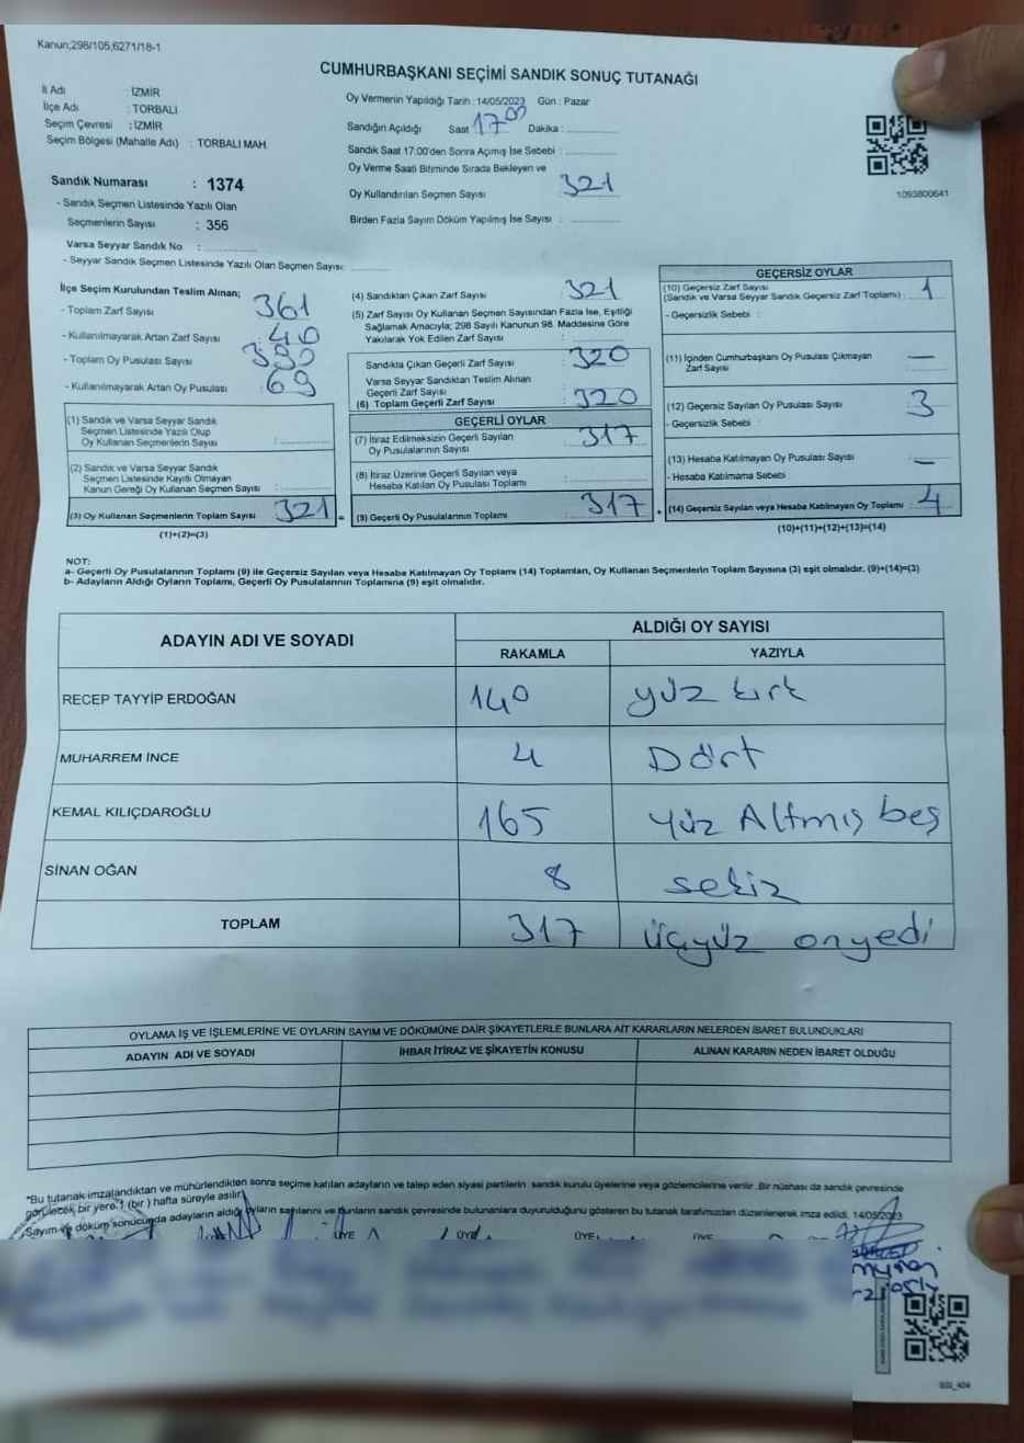 Kanun;298/105,6271/18-1
CUMHURBAŞKANI SEÇİMİ SANDIK SONUÇ TUTANAĞI
İl Adı : İZMİR
İlçe Adı : TORBALI
Seçim Çevresi : İZMİR
Seçim Bölgesi (Mahalle Adı) : TORBALI MAH.
Oy Vermenin Yapıldığı Tarih : 14/05/2023 Gün : Pazar
Sandığın Açıldığı Saat 17 00 Dakika :
Sandık Saat 17:00'den Sonra Açımış İse Sebebi :
Oy Verme Saati Bitiminde Sırada Bekleyen ve
Oy Kullandırılan Seçmen Sayısı 321
Birden Fazla Sayım Döküm Yapılmış İse Sayısı :
1093800641
Sandık Numarası : 1374
- Sandık Seçmen Listesinde Yazılı Olan
Seçmenlerin Sayısı : 356
Varsa Seyyar Sandık No :
- Seyyar Sandık Seçmen Listesinde Yazılı Olan Seçmen Sayısı:
İlçe Seçim Kurulundan Teslim Alınan;
- Toplam Zarf Sayısı 361
- Kullanılmayarak Artan Zarf Sayısı : 40
- Toplam Oy Pusulası Sayısı :
- Kullanılmayarak Artan Oy Pusulası : 69
(1) Sandık ve Varsa Seyyar Sandık
Seçmen Listesinde Yazılı Olup
Oy Kullanan Seçmenlerin Sayısı :
(2) Sandık ve Varsa Seyyar Sandık
Seçmen Listesinde Kayıtlı Olmayan
Kanun Gereği Oy Kullanan Seçmen Sayısı :
(3) Oy Kullanan Seçmenlerin Toplam Sayısı 321 =
(1)+(2)=(3)
(4) Sandıktan Çıkan Zarf Sayısı 321
(5) Zarf Sayısı Oy Kullanan Seçmen Sayısından Fazla İse, Eşitliği
Sağlamak Amacıyla; 298 Sayılı Kanunun 98. Maddesine Göre
Yakılarak Yok Edilen Zarf Sayısı :
Sandıkta Çıkan Geçerli Zarf Sayısı 320
Varsa Seyyar Sandıktan Teslim Alınan
Geçerli Zarf Sayısı :
(6) Toplam Geçerli Zarf Sayısı : 320
GEÇERLİ OYLAR
(7) İtiraz Edilmeksizin Geçerli Sayılan
Oy Pusulalarının Sayısı 317
(8) İtiraz Üzerine Geçerli Sayılan veya
Hesaba Katılan Oy Pusulası Toplamı :
(9) Geçerli Oy Pusulalarının Toplamı 317
GEÇERSİZ OYLAR
(10) Geçersiz Zarf Sayısı
(Sandık ve Varsa Seyyar Sandık Geçersiz Zarf Toplamı) : 1
- Geçersizlik Sebebi :
(11) İçinden Cumhurbaşkanı Oy Pusulası Çıkmayan
Zarf Sayısı : —
(12) Geçersiz Sayılan Oy Pusulası Sayısı : 3
- Geçersizlik Sebebi :
(13) Hesaba Katılmayan Oy Pusulası Sayısı : —
- Hesaba Katılmama Sebebi
(14) Geçersiz Sayılan veya Hesaba Katılmayan Oy Toplamı : 4
(10)+(11)+(12)+(13)=(14)
NOT:
a- Geçerli Oy Pusulalarının Toplamı (9) ile Geçersiz Sayılan veya Hesaba Katılmayan Oy Toplamı (14) Toplamları, Oy Kullanan Seçmenlerin Toplam Sayısına (3) eşit olmalıdır. (9)+(14)=(3)
b- Adayların Aldığı Oyların Toplamı, Geçerli Oy Pusulalarının Toplamına (9) eşit olmalıdır.
ADAYIN ADI VE SOYADI
ALDIĞI OY SAYISI
RAKAMLA YAZIYLA
RECEP TAYYİP ERDOĞAN 140 yüz kırk
MUHARREM İNCE 4 Dört
KEMAL KILIÇDAROĞLU 165 yüz Altmış beş
SİNAN OĞAN 8 sekiz
TOPLAM 317 üçyüz onyedi
OYLAMA İŞ VE İŞLEMLERİNE VE OYLARIN SAYIM VE DÖKÜMÜNE DAİR ŞİKAYETLERLE BUNLARA AİT KARARLARIN NELERDEN İBARET BULUNDUKLARI
ADAYIN ADI VE SOYADI İHBAR İTİRAZ VE ŞİKAYETİN KONUSU ALINAN KARARIN NEDEN İBARET OLDUĞU
*Bu tutanak imzalandıktan ve mühürlendikten sonra seçime katılan adayların ve talep eden siyasi partilerin sandık kurulu üyelerine veya gözlemcilerine verilir. Bir nüshası da sandık çevresinde
görülecek bir yere 1 (bir) hafta süreyle asılır.
Sayım ve döküm sonucunda adayların aldığı oyların sayılarını ve bunların sandık çevresinde bulunanlara duyurulduğunu gösteren bu tutanak tarafımızdan düzenlenerek imza edildi. 14/05/2023
ÜYE ÜYE ÜYE ÜYE